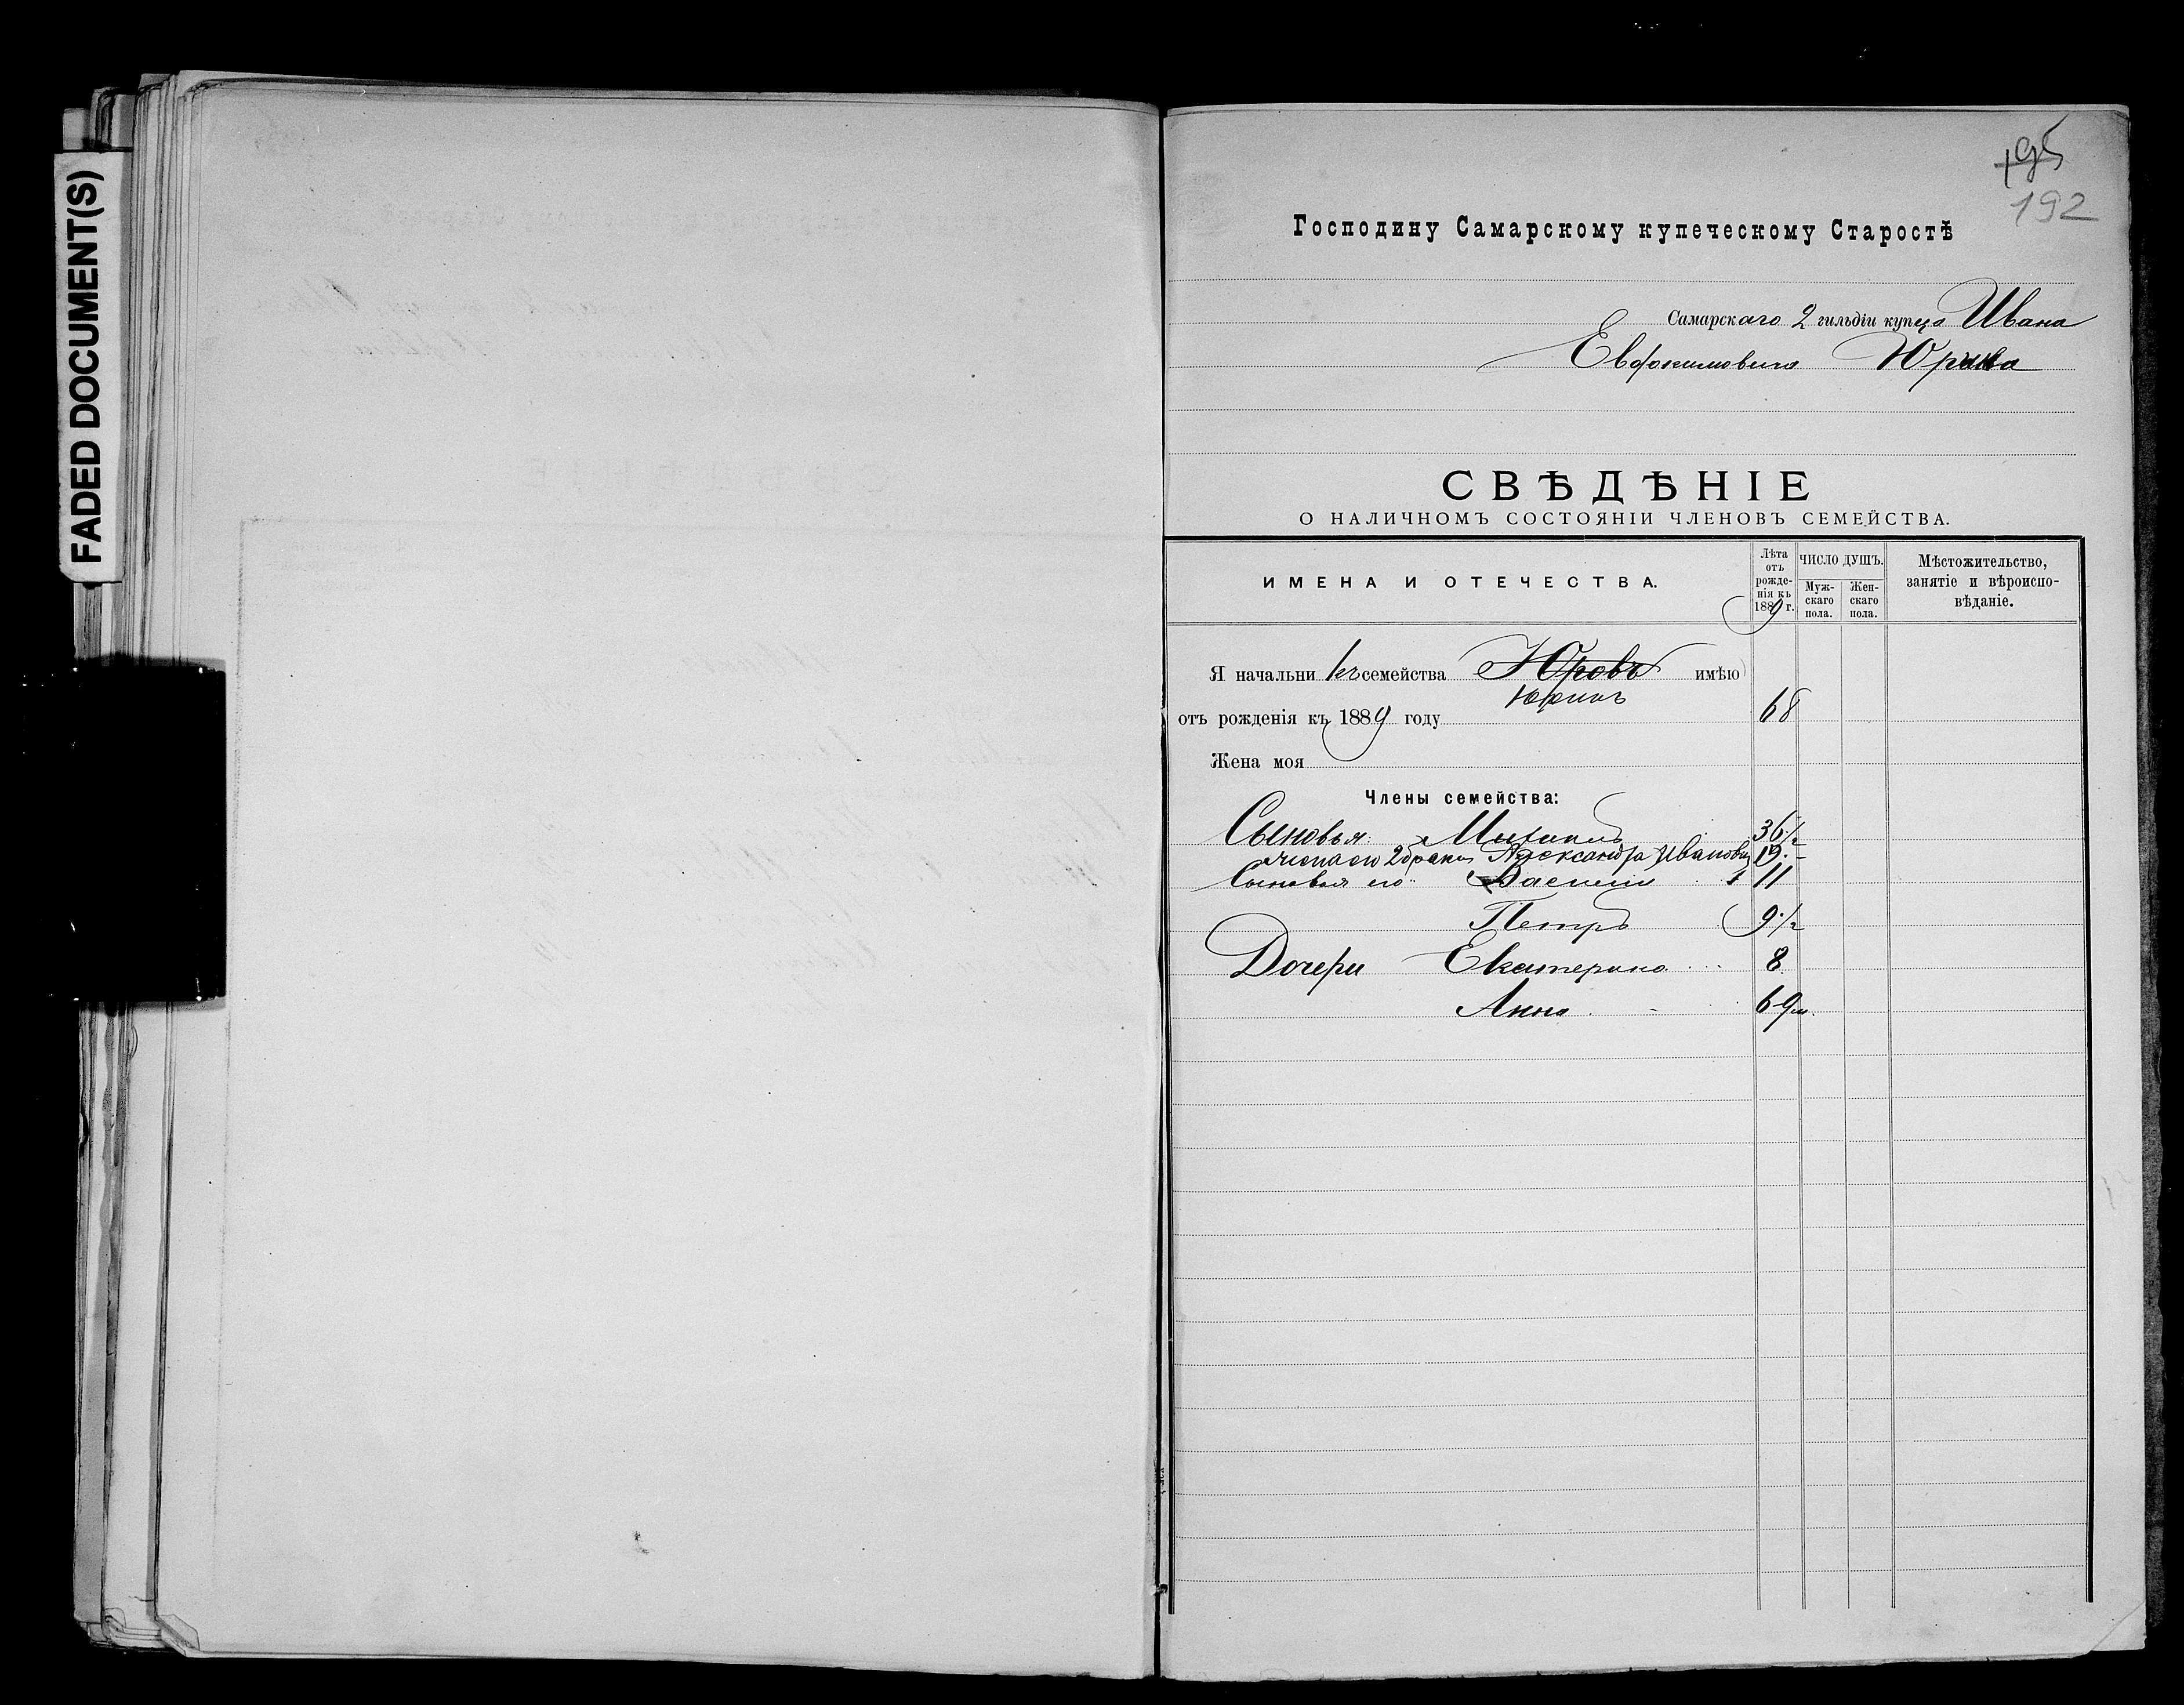 FADED DOCUMENT(S)
195
192
Господину Самарскому купеческому Старостѣ
Самарскаго 2 гильдіи купца Ивана
Евдокимовича Юрина
СВѢДѢНІЕ
О НАЛИЧНОМЪ СОСТОЯНІИ ЧЛЕНОВЪ СЕМЕЙСТВА.
ИМЕНА И ОТЕЧЕСТВА.
Лѣта отъ рожде-нія къ 1889 г.
ЧИСЛО ДУШЪ.
Муж-скаго пола.
Жен-скаго пола.
Мѣстожительство, занятіе и вѣроиспо-вѣданіе.
Я начальникъ семейства Юровъ имѣю
Юринъ
отъ рожденія къ 1889 году 68
Жена моя
Члены семейства:
Сыновья: Михаилъ 36 1/2
жена его 2 брака Александра Иванов 19
Сыновья его Василій 11
Петръ 9 1/2
Дочери Екатерина 8
Анна 6 9 м.